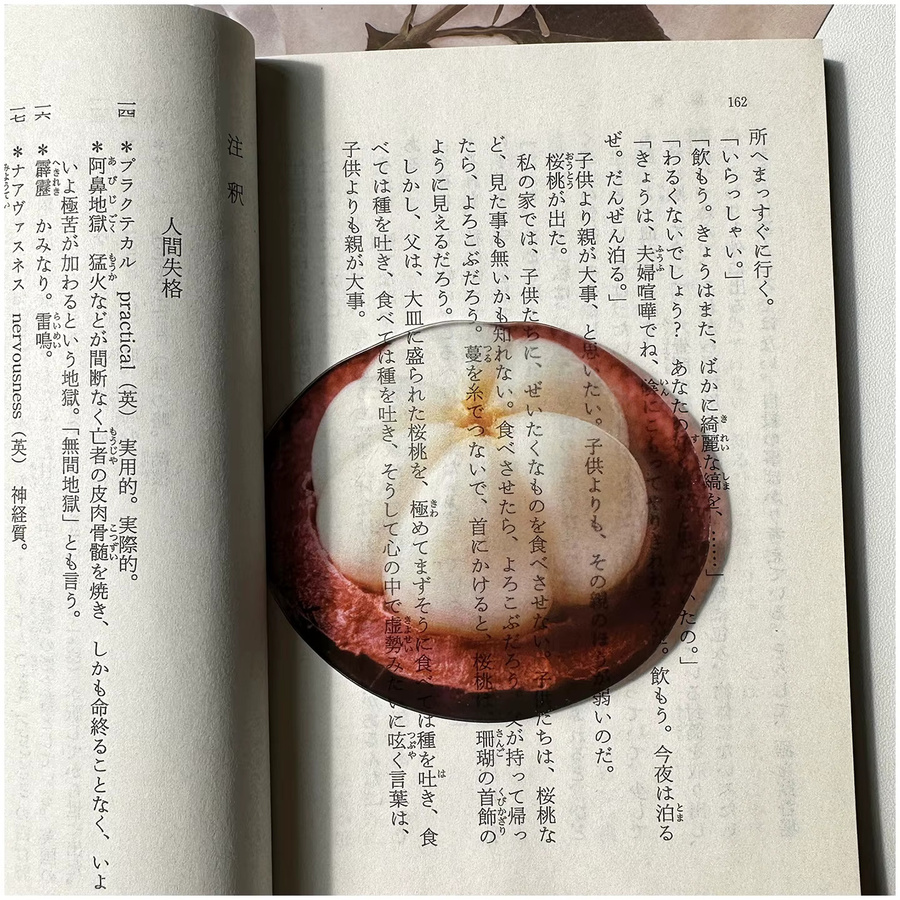 162
所へまっすぐに行く。
「いらっしゃい。」
「飲もう。きょうはまた、ばかに綺麗な縞を、……」
「わるくないでしょう? あなたの だと思っていたの。」
「きょうは、夫婦喧嘩でね、陰にこもってやりきれねえんだ。飲もう。今夜は泊る
ぜ。だんぜん泊る。」
子供より親が大事、と思いたい。子供よりも、その親のほうが弱いのだ。
桜桃が出た。
私の家では、子供たちに、ぜいたくなものを食べさせない。子供たちは、桜桃な
ど、見た事も無いかも知れない。食べさせたら、よろこぶだろう。父が持って帰っ
たら、よろこぶだろう。蔓を糸でつないで、首にかけると、桜桃は、珊瑚の首飾の
ように見えるだろう。
しかし、父は、大皿に盛られた桜桃を、極めてまずそうに食べては種を吐き、食
べては種を吐き、食べては種を吐き、そうして心の中で虚勢みたいに呟く言葉は、
子供よりも親が大事。
注釈
人間失格
一四 ＊プラクテカル practical（英） 実用的。実際的。
＊阿鼻地獄 猛火などが間断なく亡者の皮肉骨髄を焼き、しかも命終ることなく、いよ
いよ極苦が加わるという地獄。「無間地獄」とも言う。
一六 ＊霹靂 かみなり。雷鳴。
一七 ＊ナアヴァスネス nervousness（英） 神経質。